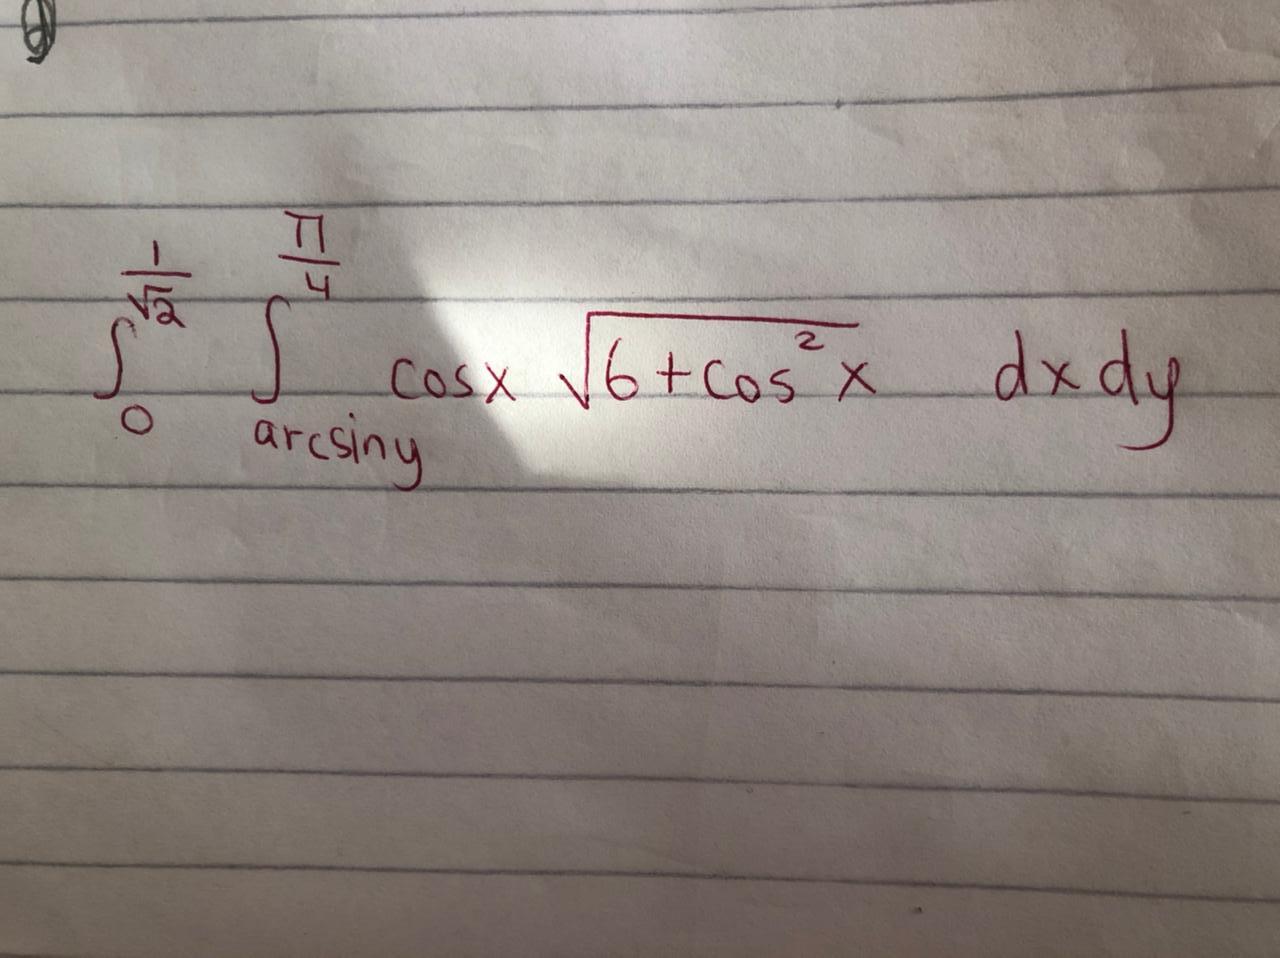 ∫_0^{1/√2} ∫_{arcsiny}^{π/4} cosx √(6+cos²x) dxdy